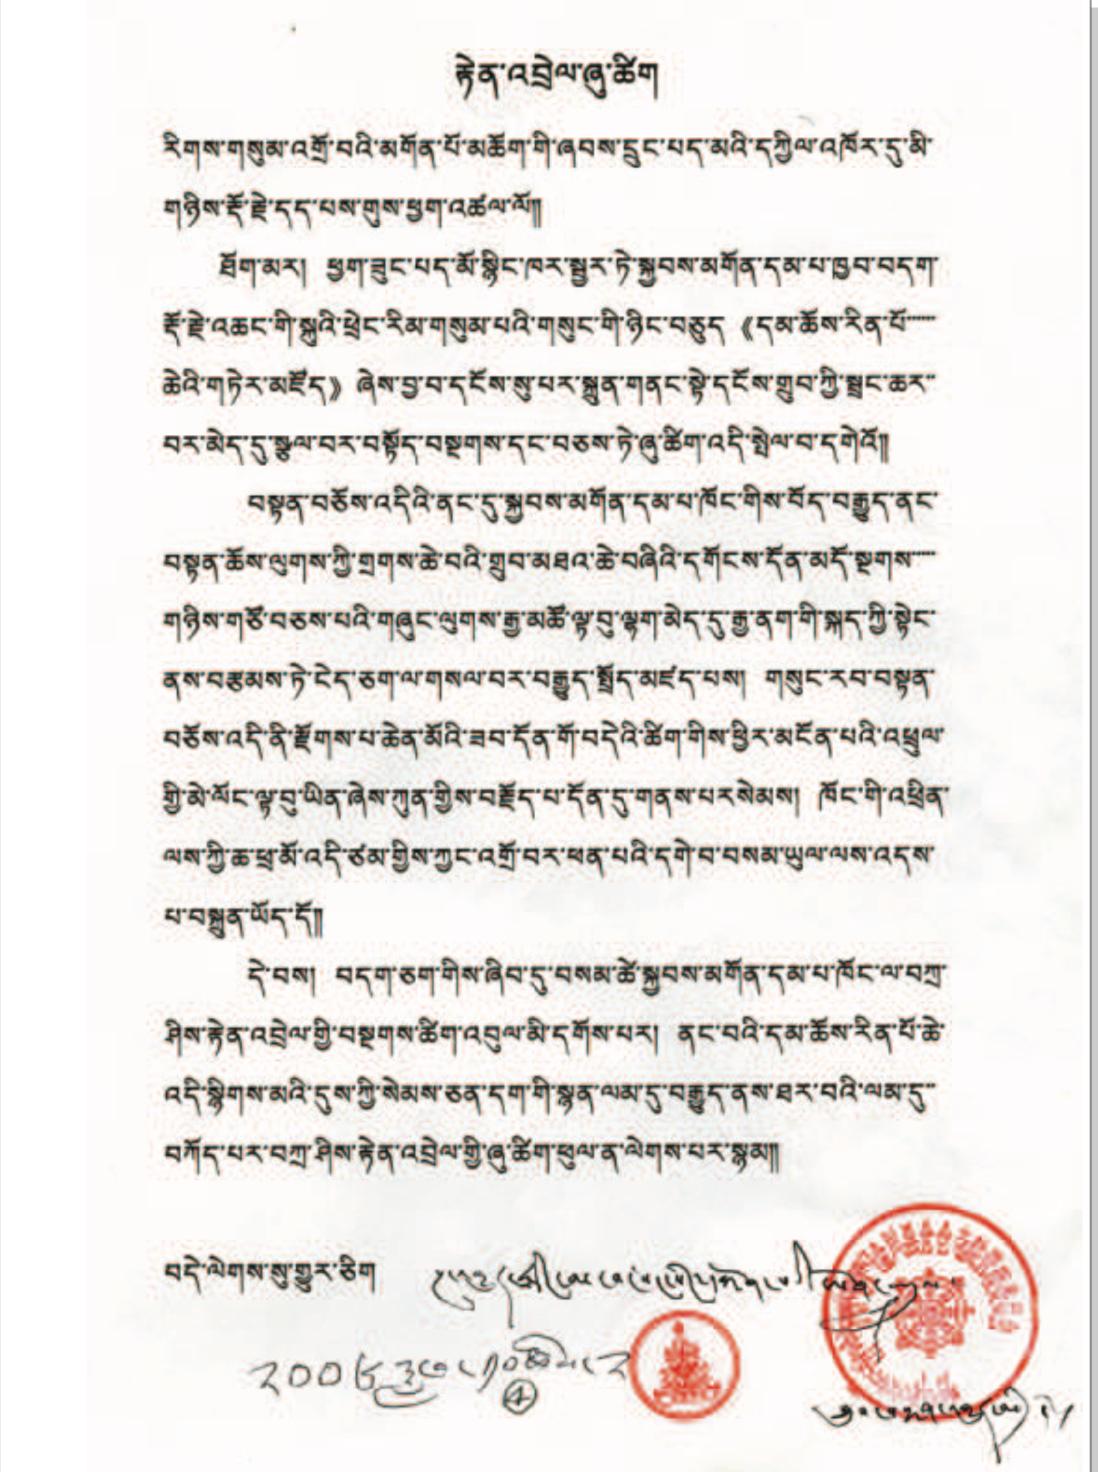 རྟེན་འབྲེལ་ཞུ་ཚིག
རིགས་གསུམ་འགྲོ་བའི་མགོན་པོ་མཆོག་གི་ཞབས་དྲུང་པད་མའི་དཀྱིལ་འཁོར་དུ་མི་
གཉིས་རྡོ་རྗེ་དད་པས་གུས་ཕྱག་འཚལ་ལོ༎
ཐོག་མར། ཕྱག་ཟུང་པད་མོ་སྙིང་ཁར་སྦྱར་ཏེ་སྐྱབས་མགོན་དམ་པ་ཁྱབ་བདག་
རྡོ་རྗེ་འཆང་གི་སྐུའི་ཕྲེང་རིམ་གསུམ་པའི་གསུང་གི་ཉིང་བཅུད《དམ་ཆོས་རིན་པོ་
ཆེའི་གཏེར་མཛོད》ཞེས་བྱ་བ་དངོས་སུ་པར་སྐྲུན་གནང་སྟེ་དངོས་གྲུབ་ཀྱི་སྦྲང་ཆར་
བར་མེད་དུ་སྩལ་བར་བསྟོད་བསྔགས་དང་བཅས་ཏེ་ཞུ་ཚིག་འདི་སྤེལ་བ་དགེའོ༎
བསྟན་བཅོས་འདིའི་ནང་དུ་སྐྱབས་མགོན་དམ་པ་ཁོང་གིས་བོད་བརྒྱུད་ནང་
བསྟན་ཆོས་ལུགས་ཀྱི་གྲགས་ཆེ་བའི་གྲུབ་མཐའ་ཆེ་བཞིའི་དགོངས་དོན་མདོ་སྔགས་
གཉིས་གཙོ་བཅས་པའི་གཞུང་ལུགས་རྒྱ་མཚོ་ལྟ་བུ་ལྷག་མེད་དུ་རྒྱ་ནག་གི་སྐད་ཀྱི་སྟེང་
ནས་བརྩམས་ཏེ་ངེད་ཅག་ལ་གསལ་བར་བརྒྱུད་སྤྲོད་མཛད་པས། གསུང་རབ་བསྟན་
བཅོས་འདི་ནི་རྫོགས་པ་ཆེན་མོའི་ཟབ་དོན་གོ་བདེའི་ཚིག་གིས་ཕྱིར་མངོན་པའི་འཕྲུལ་
གྱི་མེ་ལོང་ལྟ་བུ་ཡིན་ཞེས་ཀུན་གྱིས་བརྗོད་པ་དོན་དུ་གནས་པར་སེམས། ཁོང་གི་འཕྲིན་
ལས་ཀྱི་ཆ་ཕྲ་མོ་འདི་ཙམ་གྱིས་ཀྱང་འགྲོ་བར་ཕན་པའི་དགེ་བ་བསམ་ཡུལ་ལས་འདས་
པ་བསྐྲུན་ཡོད་དོ༎
དེ་བས། བདག་ཅག་གིས་ཞིབ་ཏུ་བསམ་ཚེ་སྐྱབས་མགོན་དམ་པ་ཁོང་ལ་བཀྲ་
ཤིས་རྟེན་འབྲེལ་གྱི་བསྔགས་ཚིག་འབུལ་མི་དགོས་པར། ནང་བའི་དམ་ཆོས་རིན་པོ་ཆེ་
འདི་སྙིགས་མའི་དུས་ཀྱི་སེམས་ཅན་དག་གི་སྙན་ལམ་དུ་བརྒྱུད་ནས་ཐར་བའི་ལམ་དུ་
བཀོད་པར་བཀྲ་ཤིས་རྟེན་འབྲེལ་གྱི་ཞུ་ཚིག་ཕུལ་ན་ལེགས་པར་སྙམ༎
བདེ་ལེགས་སུ་གྱུར་ཅིག